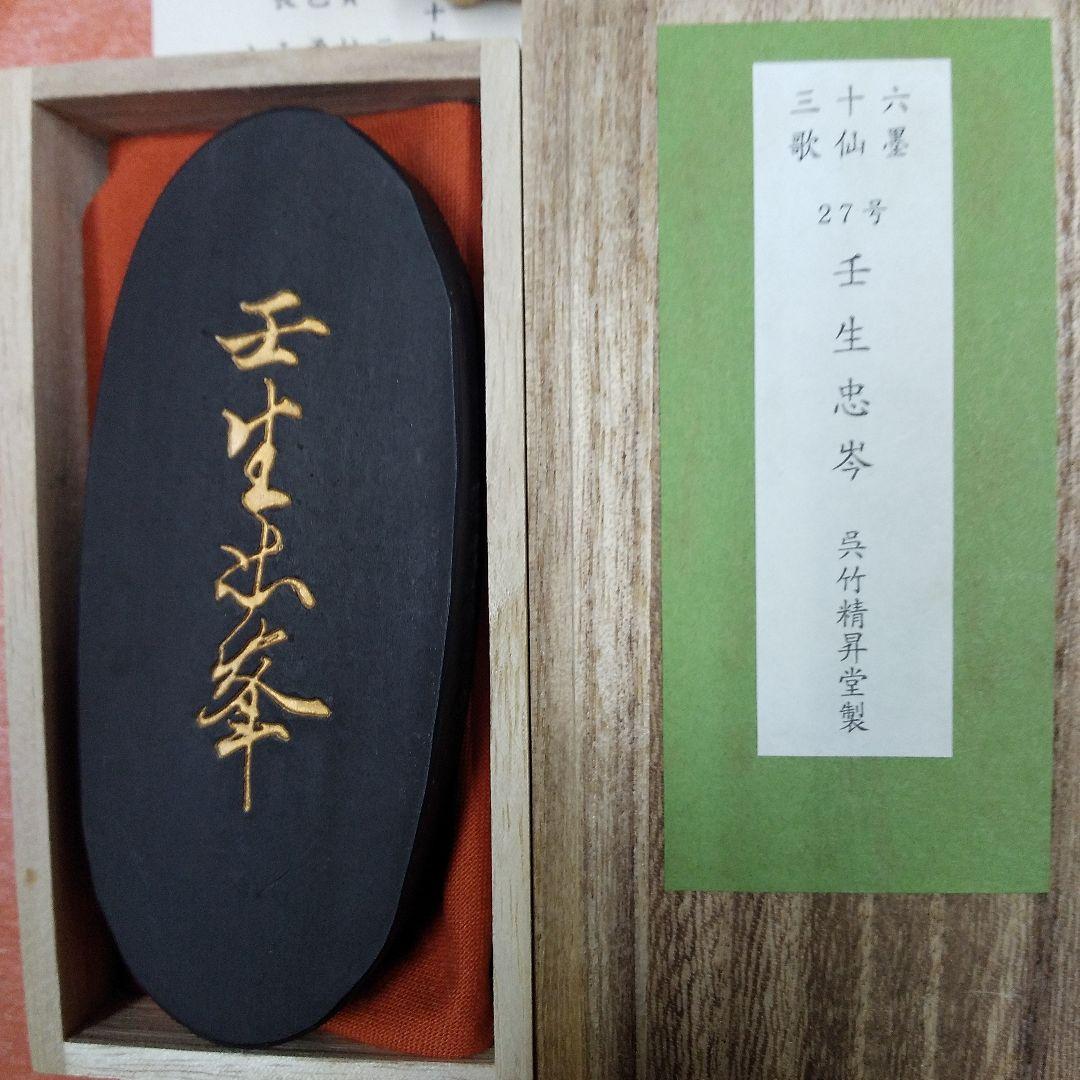 壬生忠峯
三十六
歌仙墨
27号
壬生忠岑
呉竹精昇堂製